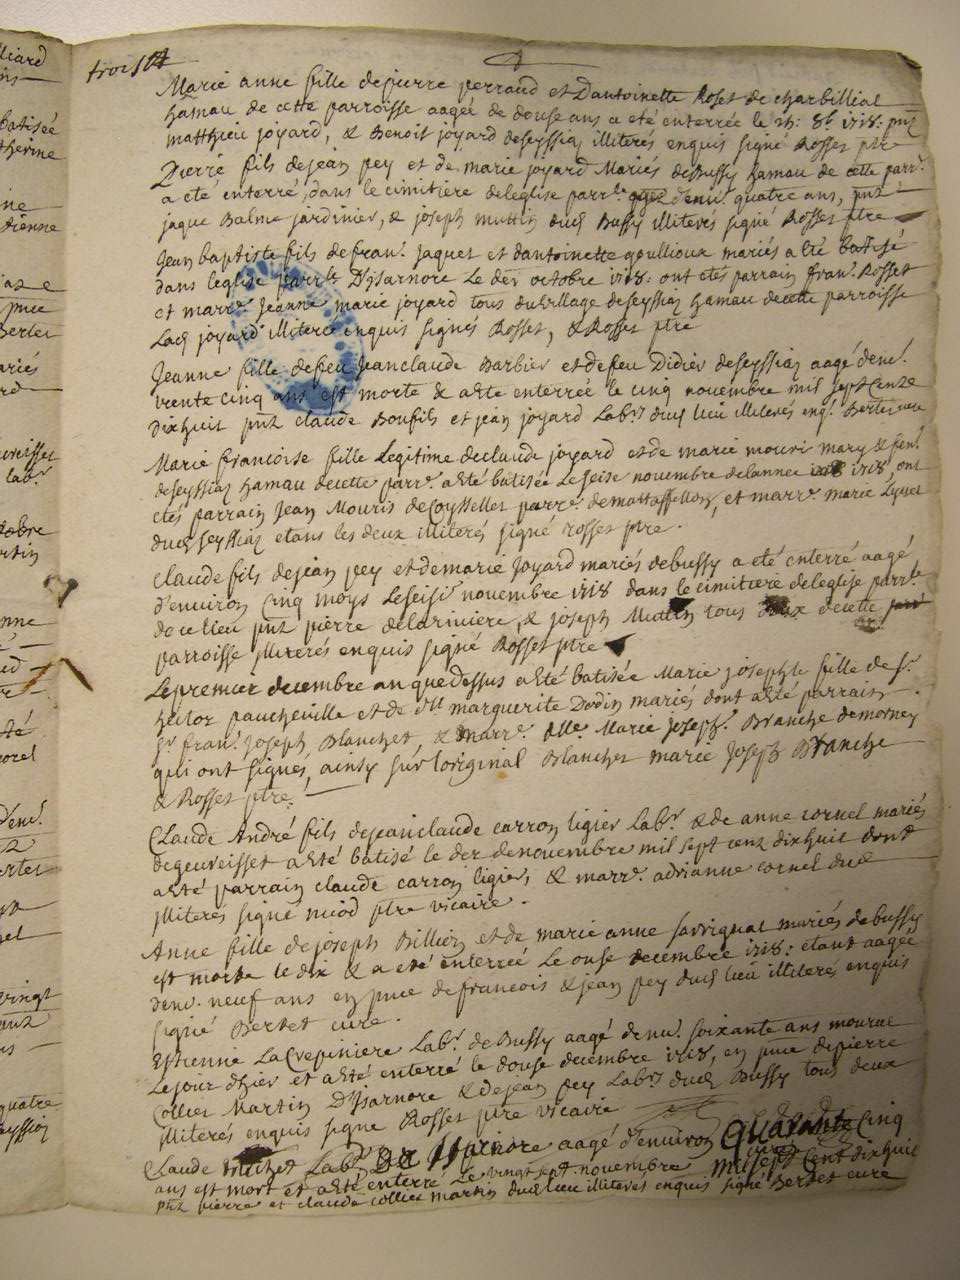 trois
Marie anne fille de pierre perraud et Dantoinette Roset de charbilliat
hamau de cette parroisse aagée de douse ans a eté enterrée le 8b. 1718: pnt
matthieu joyard, & Benoit joyard de seyssia illiterés enquis signé Rosset ptre
Pierre fils de jean pey et de marie joyard Mariés de Bussy hamau de cette parr.
a eté enterré dans le cimitiere de leglise parr.le d'env. quatre ans, pnt
jaque Balme jardinier, & joseph muttin dud Bussy illiterés signé Rosset ptre
Jean baptiste fils de fran. jaquet et dantoinette goullioux mariés a eté batisé
dans leglise parr.le D'jsarnore le der octobre 1718: ont etés parrain fran. Rosset
et marr. Jeanne marie joyard tous du village de seyssia hamau de cette parroisse
Lad joyard illiterée enquis signés Rosset, & Rosset ptre
Jeanne fille de feu jean claude Barbier et de feu Didier de seyssia aagé denv.
trente cinq ans est morte & a eté enterrée le cinq novembre mil sept cents
dixhuit pnt claude Bonfils et jean joyard Lab.rs dud lieu illiterés enq. Bertet cure
Marie francoise fille Legitime de claude joyard et de marie mouri mary & fem.
de seyssia hamau de cette parr. a eté batisée Le seise novembre de lannée 1718, ont
etés parrain Jean Mouris de Coysselles parr. de mattaffellon, et marr. marie
dud seyssia etans les deux illiterés signé rosset ptre.
claude fils de jean pey et de marie joyard mariés de bussy a eté enterré aagé
d'environ cinq moys Le seisi. novembre 1718 dans le cimitiere de leglise parr.le
de ce lieu pnt pierre de lariviere, & joseph Mutin tous deux de cette
parroisse illiterés enquis signé Rosset ptre
Le premier decembre an que dessus a eté batisée Marie josephte fille de s.r
hector paucheville et de d.lle marguerite Dodin mariés dont a eté parrain
s.r fran. joseph Blanchet, & marr. dlle. Marie joseph. Branche de mornay
qui ont signés, ainsy sur loriginal Blanchet marie joseph Branche
& Rosset ptre.
Claude André fils de jean claude carron ligier Lab.r & de anne cornel mariés
de geuvreisset a eté batisé le der de novembre mil sept cent dixhuit dont
a eté parrain claude carron ligier, & marr. adrianne cornel dud
illiterés signé niod ptre vicaire.
Anne fille de joseph Billion et de marie anne savrignat mariés de bussy
est morte le dix & a eté enterrée Le onse decembre 1718: etant aagée
denv. neuf ans en pnce de francois & jean pey dud lieu illiterés enquis
signé Bertet cure.
Estienne La Crepiniere Lab.r de Bussy aagé denv. soixante ans mourut
Le jour d'hier et a eté enterré le douse decembre 1718, en pnce de pierre
Collier Martin D'jsarnore & de jean pey Lab.rs dud Bussy tous deux
illiterés enquis signe Rosset ptre vicaire
Claude Lab.r De Isarnore aagé d'environ Quarante Cinq
ans est mort et a eté enterre Le vingt sept novembre mil sept Cent dixhuit
pnt pierre et claude collier martin dud lieu illiteres enquis signé Bertet cure